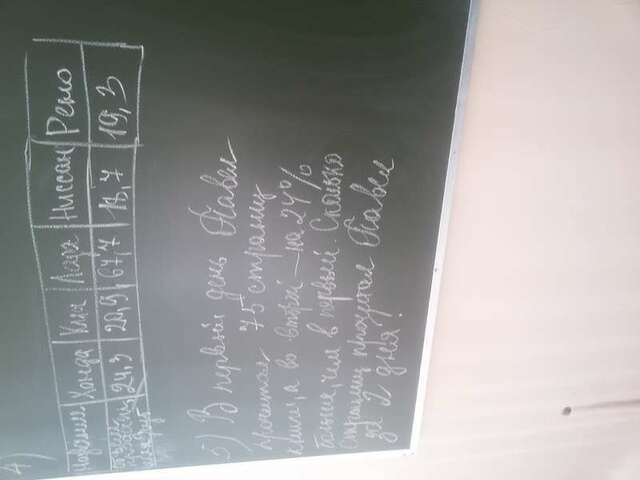 4)
Название Хонда Киа Лада Ниссан Рено
24,3 20,9 67,7 18,7 19,3
5) В первый день Павел
прочитал 75 страниц
книги, а во второй — на 24%
больше, чем в первый. Сколько
страниц прочитал Павел
за 2 дня?